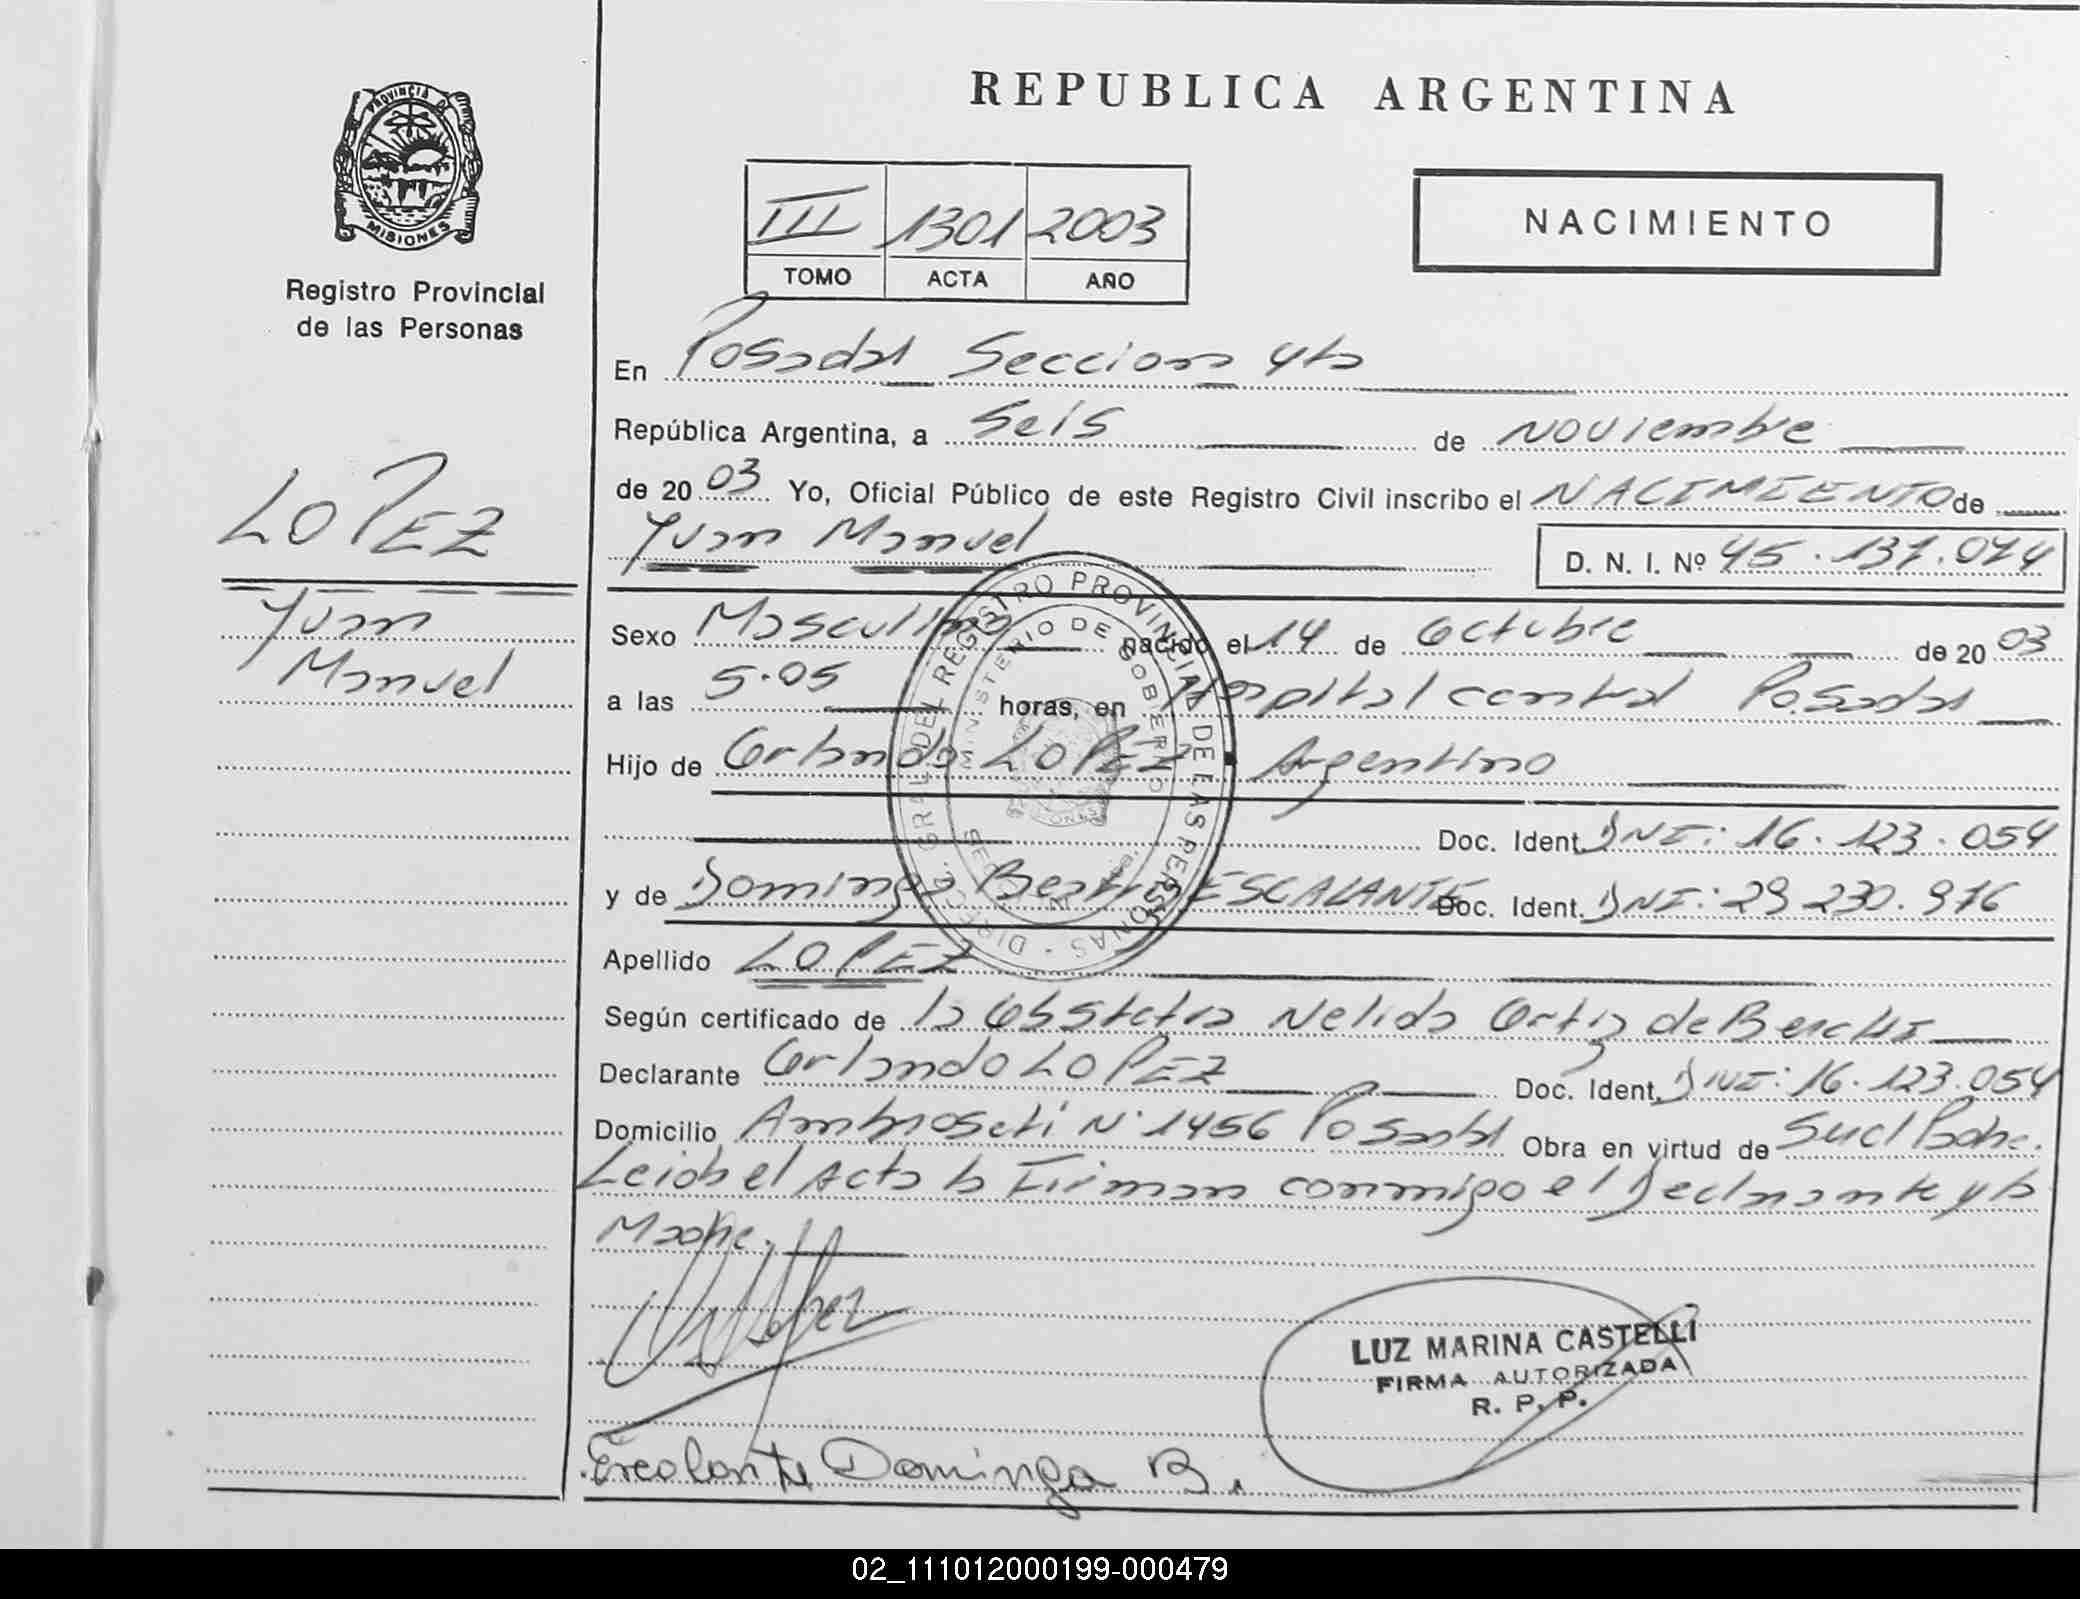 PROVINCIA DE
MISIONES
Registro Provincial
de las Personas
LOPEZ
Juan
Manuel
REPUBLICA ARGENTINA
III 1301 2003
TOMO ACTA AÑO
NACIMIENTO
En Posadas Seccion 4ta
República Argentina, a Seis de Noviembre
de 2003 Yo, Oficial Público de este Registro Civil inscribo el NACIMIENTO de
Juan Manuel D. N. I. Nº 45.137.074
Sexo Masculino nacido el 14 de Octubre de 2003
a las 5.05 horas, en Hospital central Posadas
Hijo de Orlando LOPEZ Argentino
Doc. Ident. DNI: 16.123.054
y de Dominga Beatriz ESCALANTE Doc. Ident. DNI: 29.230.976
Apellido LOPEZ
Según certificado de la Obstetra Nelida Ortiz de
Declarante Orlando LOPEZ Doc. Ident. DNI: 16.123.054
Domicilio Ambroseti N° 1456 Posadas Obra en virtud de Su cl Padre.
Leida el Acta la Firman conmigo el Declarante y la
Madre.
DIREC. GRAL. DEL REGISTRO PROVINCIAL DE LAS PERSONAS
MINISTERIO DE GOBIERNO
Lopez
LUZ MARINA CASTELLI
FIRMA AUTORIZADA
R. P. P.
Escalante Dominga B.
02_111012000199-000479